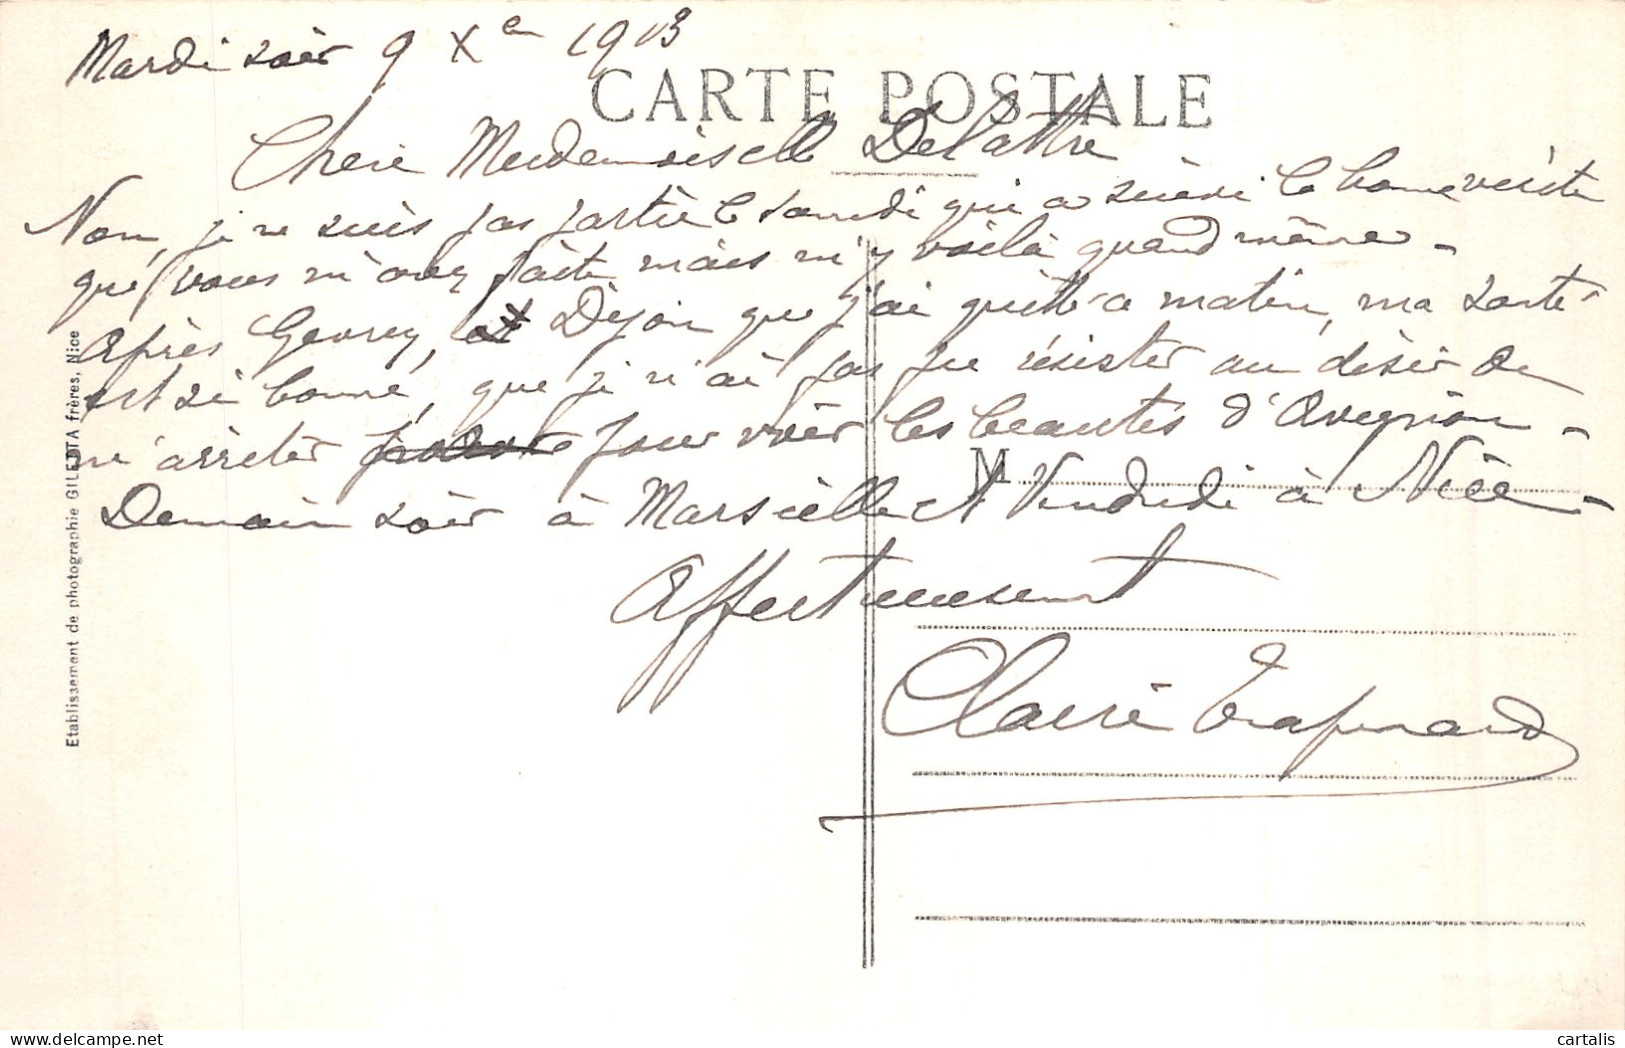 Mardi soir 9 Xe 1913
CARTE POSTALE
Chère Mademoiselle Delattre
Non, je ne suis pas partie le samedi qui a suivi la bonne visite
que vous m'avez faite mais m'y voilà quand même -
Après Gevrey, et Dijon que j'ai quitté ce matin, ma santé
est si bonne, que je n'ai pas pu résister au désir de
m'arrêter pour voir les beautés d'Avignon -
M
Demain soir à Marseille et Vendredi à Nice -
Affectueusement
Claire
Etablissement de photographie GILETTA frères, Nice
cartalis